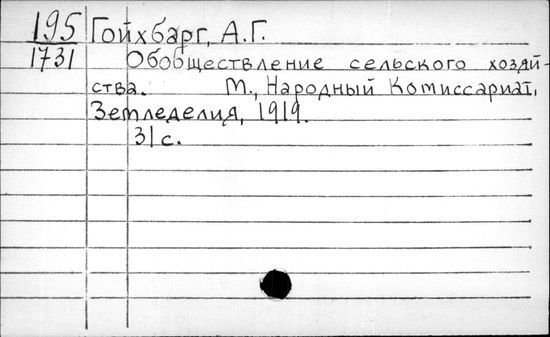 195 Гойхбарг, А.Г.
1731 Обобществление сельского хозяй-
ства. М., Народный Комиссариат,
Земледелия, 1919.
31 с.